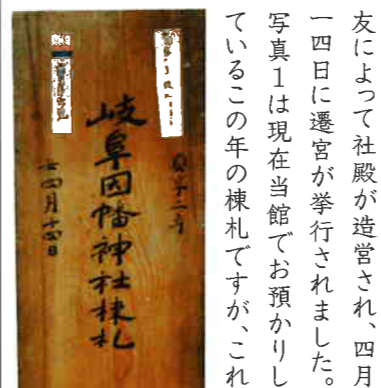 友によって社殿が造営され、四月
一四日に遷宮が挙行されました。
写真1は現在当館でお預かりし
ているこの年の棟札ですが、これ
岐阜因幡神社棟札
四月十四日